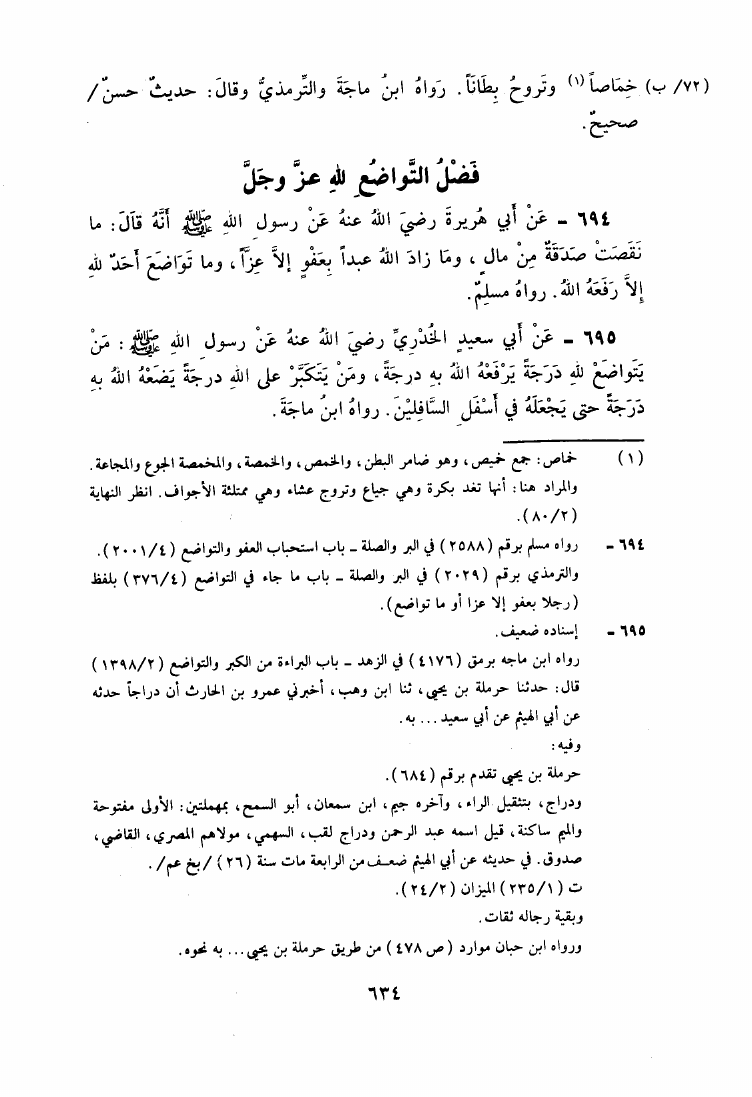 (٧٢/ ب) خِمَاصاً (١) وتَروحُ بِطَانَاً. رَواهُ ابنُ ماجَةَ والتِّرمذيُّ وقالَ: حديثٌ حسنٌ/
صحيحٌ.
فَضْلُ التَّواضُعِ للهِ عزَّ وجَلَّ
٦٩٤ ـ عَنْ أَبي هُريرةَ رضيَ اللهُ عنهُ عَنْ رسولِ اللهِ ﷺ أَنَّهُ قالَ: ما
نَقَصَتْ صَدَقَةٌ مِنْ مالٍ، ومَا زادَ اللهُ عبداً بِعَفْوٍ إلاَّ عِزَّاً، وما تَوَاضَعَ أَحَدٌ للهِ
إلاَّ رَفَعَهُ اللهُ. رواهُ مسلمٌ.
٦٩٥ ـ عَنْ أَبي سعيدٍ الخُدْرِيِّ رضيَ اللهُ عنهُ عَنْ رسولِ اللهِ ﷺ: مَنْ
يَتَواضَعْ للهِ دَرَجَةً يَرْفَعْهُ اللهُ بهِ درجةً، ومَنْ يَتَكَبَّرْ على اللهِ درجةً يَضَعْهُ اللهُ بهِ
دَرَجَةً حتى يَجْعَلَهُ في أَسْفَلِ السَّافِلِيْنَ. رواهُ ابنُ ماجَةَ.
(١) خماص: جمع خميص، وهو ضامر البطن، والخمص، والخمصة، والمخمصة الجوع والمجاعة.
والمراد هنا: أنها تغد بكرة وهي جياع وتروح عشاء وهي ممتلئة الأجواف. انظر النهاية
(٨٠/٢).
٦٩٤ ـ رواه مسلم برقم (٢٥٨٨) في البر والصلة ـ باب استحباب العفو والتواضع (٢٠٠١/٤).
والترمذي برقم (٢٠٢٩) في البر والصلة ـ باب ما جاء في التواضع (٣٧٦/٤) بلفظ
(رجلا بعفو إلا عزا أو ما تواضع).
٦٩٥ ـ إسناده ضعيف.
رواه ابن ماجه برمق (٤١٧٦) في الزهد ـ باب البراءة من الكبر والتواضع (١٣٩٨/٢)
قال: حدثنا حرملة بن يحيى، ثنا ابن وهب، أخبرني عمرو بن الحارث أن دراجاً حدثه
عن أبي الهيثم عن أبي سعيد... به.
وفيه:
حرملة بن يحيى تقدم برقم (٦٨٤).
ودراج، بتثقيل الراء، وآخره جيم، ابن سمعان، أبو السمح، بمهملتين: الأولى مفتوحة
والميم ساكنة، قيل اسمه عبد الرحمن ودراج لقب، السهمي، مولاهم المصري، القاضي،
صدوق. في حديثه عن أبي الهيثم ضعف من الرابعة مات سنة (٢٦) /بخ عم/.
ت (٢٣٥/١) الميزان (٢٤/٢).
وبقية رجاله ثقات.
ورواه ابن حبان موارد (ص ٤٧٨) من طريق حرملة بن يحيى... به نحوه.
٦٣٤